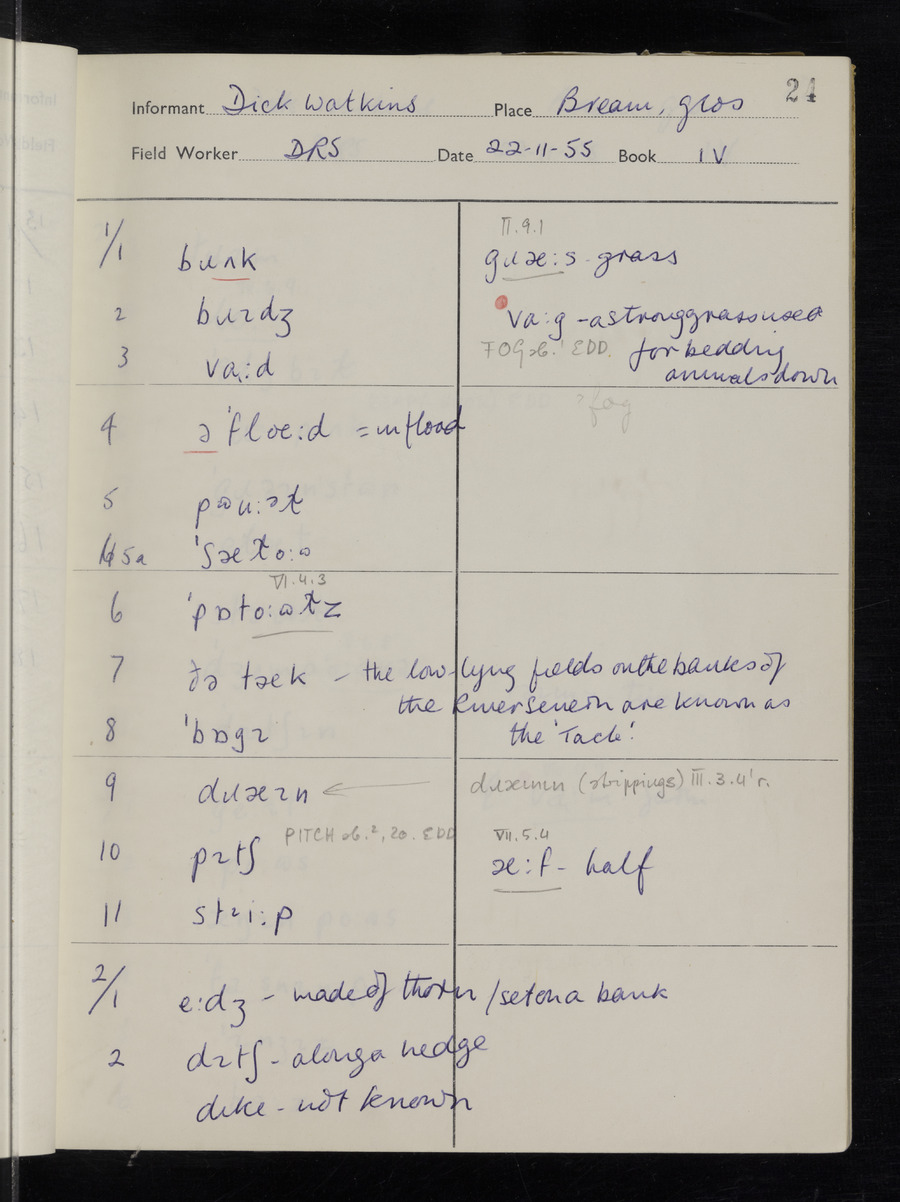 24
Informant Dick Watkins Place Bream, glos
Field Worker DRS Date 22-11-55 Book IV
1/1 bɹʌnk
II.9.1
gɹæ:s - grass
2 bɹɪdʒ
va:g - a strong grass used
3 va:d
FOG sb.¹ EDD. for bedding
animals down
?fog
4 ə'flœ:d = in flood
5
5a
VI.4.3
6
7 ðə tæk - the low-lying fields on the banks of
the River Severn are known as
the 'Tack'.
8 'bɒgɪ
9 dɹæɪn ← (strippings) III.3.4'r.
PITCH sb.², 20. EDD
10 pɪtʃ
VII.5.4
æ:f - half
11 stɹi:p
2/1 e:dʒ - made of thorn / set on a bank
2 dɪtʃ - along a hedge
dike - not known